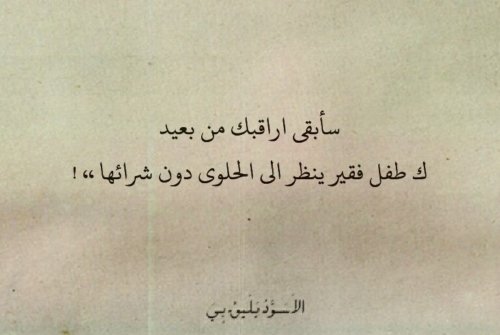 سأبقى اراقبك من بعيد
ك طفل فقير ينظر الى الحلوى دون شرائها “ !
الاسود يليق بي